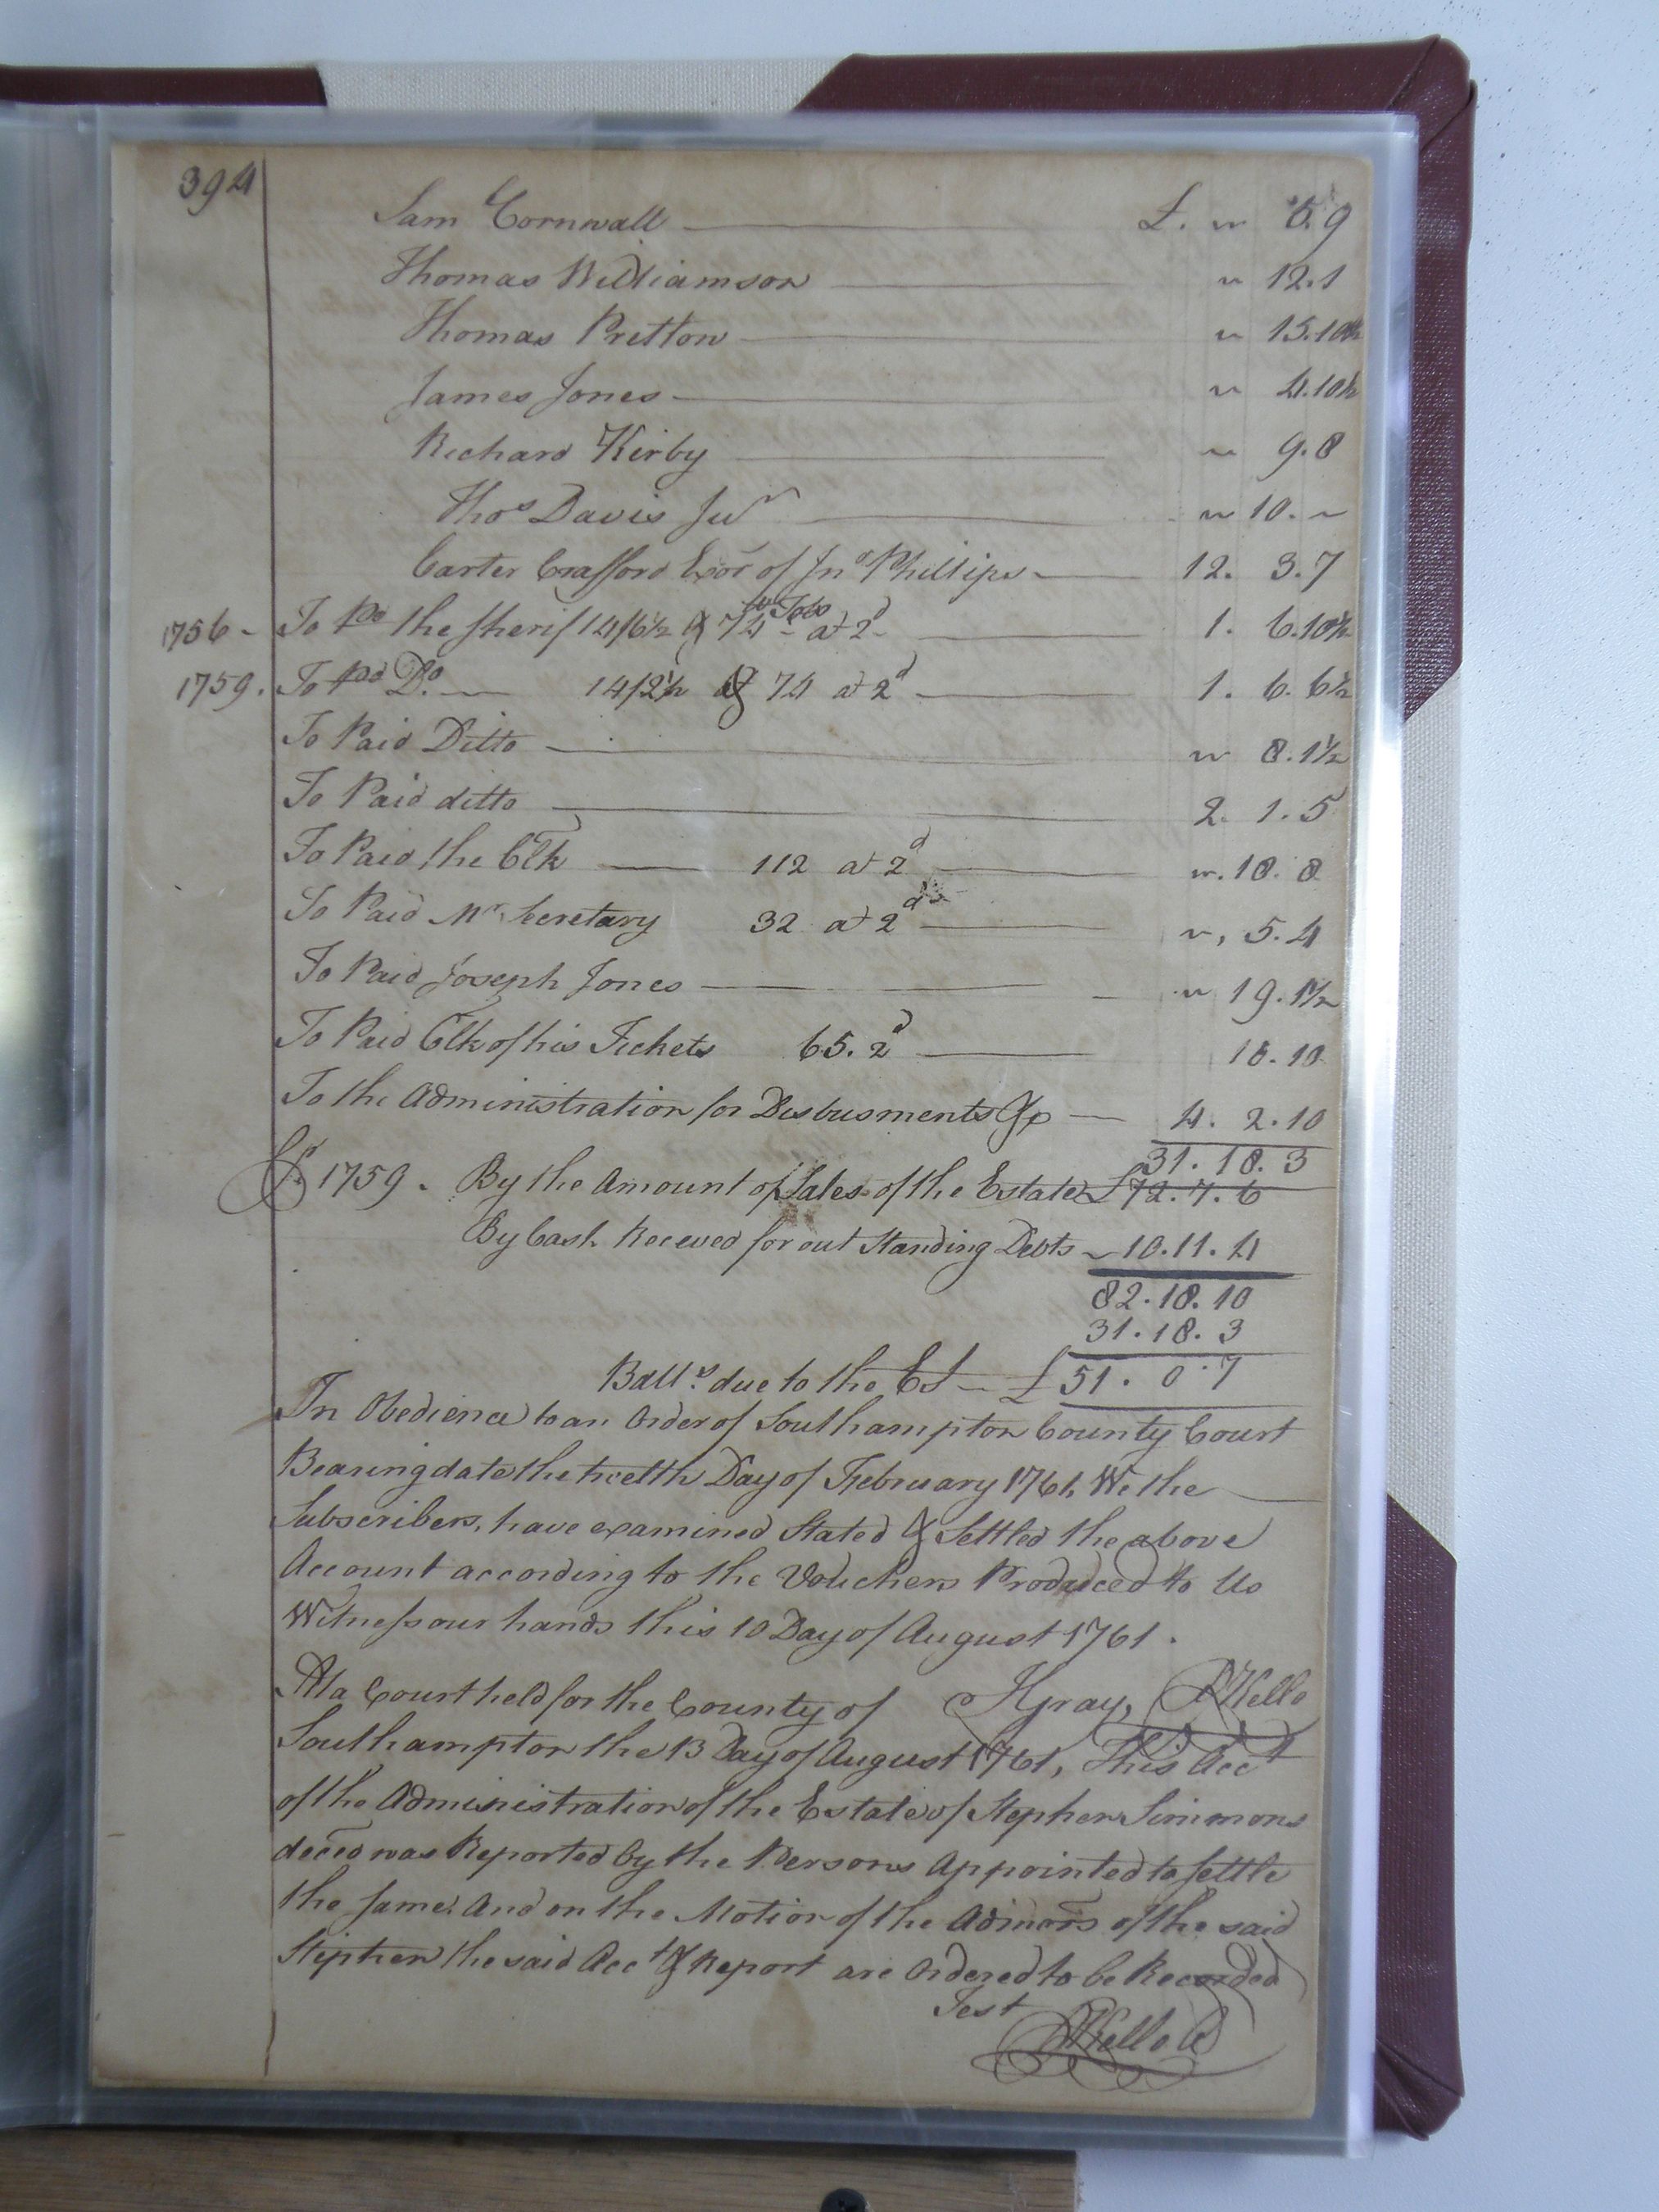 394
Sam Cornwall £. " 5.9
Thomas Williamson " 12.1
Thomas Pretlow " 15.10½
James Jones " 4.10½
Richard Kirby " 9.8
Thos Davis Junr " 10. "
Carter Crafford Exor of Jno Phillips 12. 3.7
1756 - To pd the Sherif 14/6½ & 74 lb Tobo at 2d 1. 6.10½
1759. To pd Do. 14/2½ & 74 at 2d 1. 6. 6½
To Paid Ditto " 8.1½
To Paid ditto 2. 1.5
To Paid the Clk 112 at 2d ". 18. 8
To Paid Mr. Secretary 32 at 2d ", 5.4
To Paid Joseph Jones " 19.1½
To Paid Clk of his Tickets 65. 2d 10.10
To the Administration for Disbusments &c 4. 2.10
31.18.3
Cr 1759. By the Amount of Sales of the Estate £72.7.6
By Cash Receved for out Standing Debts 10.11.4
82.18.10
31.18.3
Ballce. due to the Est £51. 0.7
In Obedience to an Order of Southampton County Court
Bearing date the twelth Day of February 1761, We the
Subscribers, have examined Stated & Settled the above
Account according to the Vouchers Produced to Us
Witness our hands this 10 Day of August 1761.
At a Court held for the County of JGray, RKello
Southampton the 13 Day of August 1761, This Acct
of the Administration of the Estate of Stephen Simmons
deced was Reported by the Persons Appointed to settle
the same. And on the Motion of the Admors of the said
Stephen the said Acct & Report are Ordered to be Recorded
Test
RKello Cl